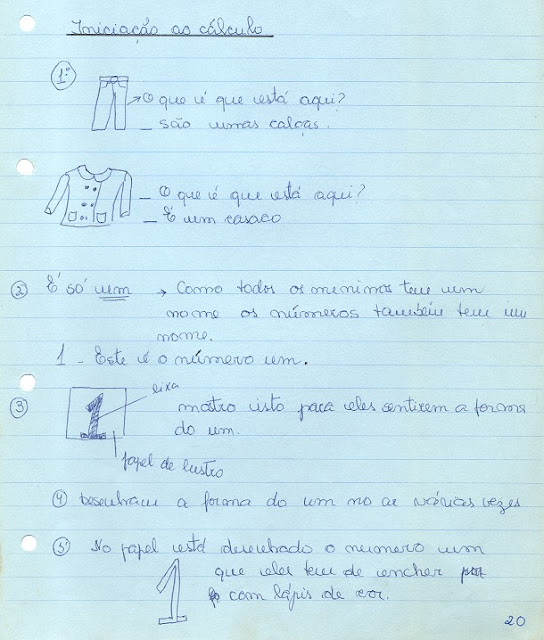 Iniciação ao cálculo
1º
O que é que está aqui?
_ são umas calças.
_ O que é que está aqui?
_ É um casaco
2 É só um → Como todos os meninos tem um
nome os números também tem um
nome.
1 - Este é o número um.
lixa
3 1 mostro isto para eles sentirem a forma
do um.
papel de lustro
4 Desenham a forma do um no ar várias vezes
5 No papel está desenhado o numero um
1 que eles tem de encher
com lápis de cor.
20